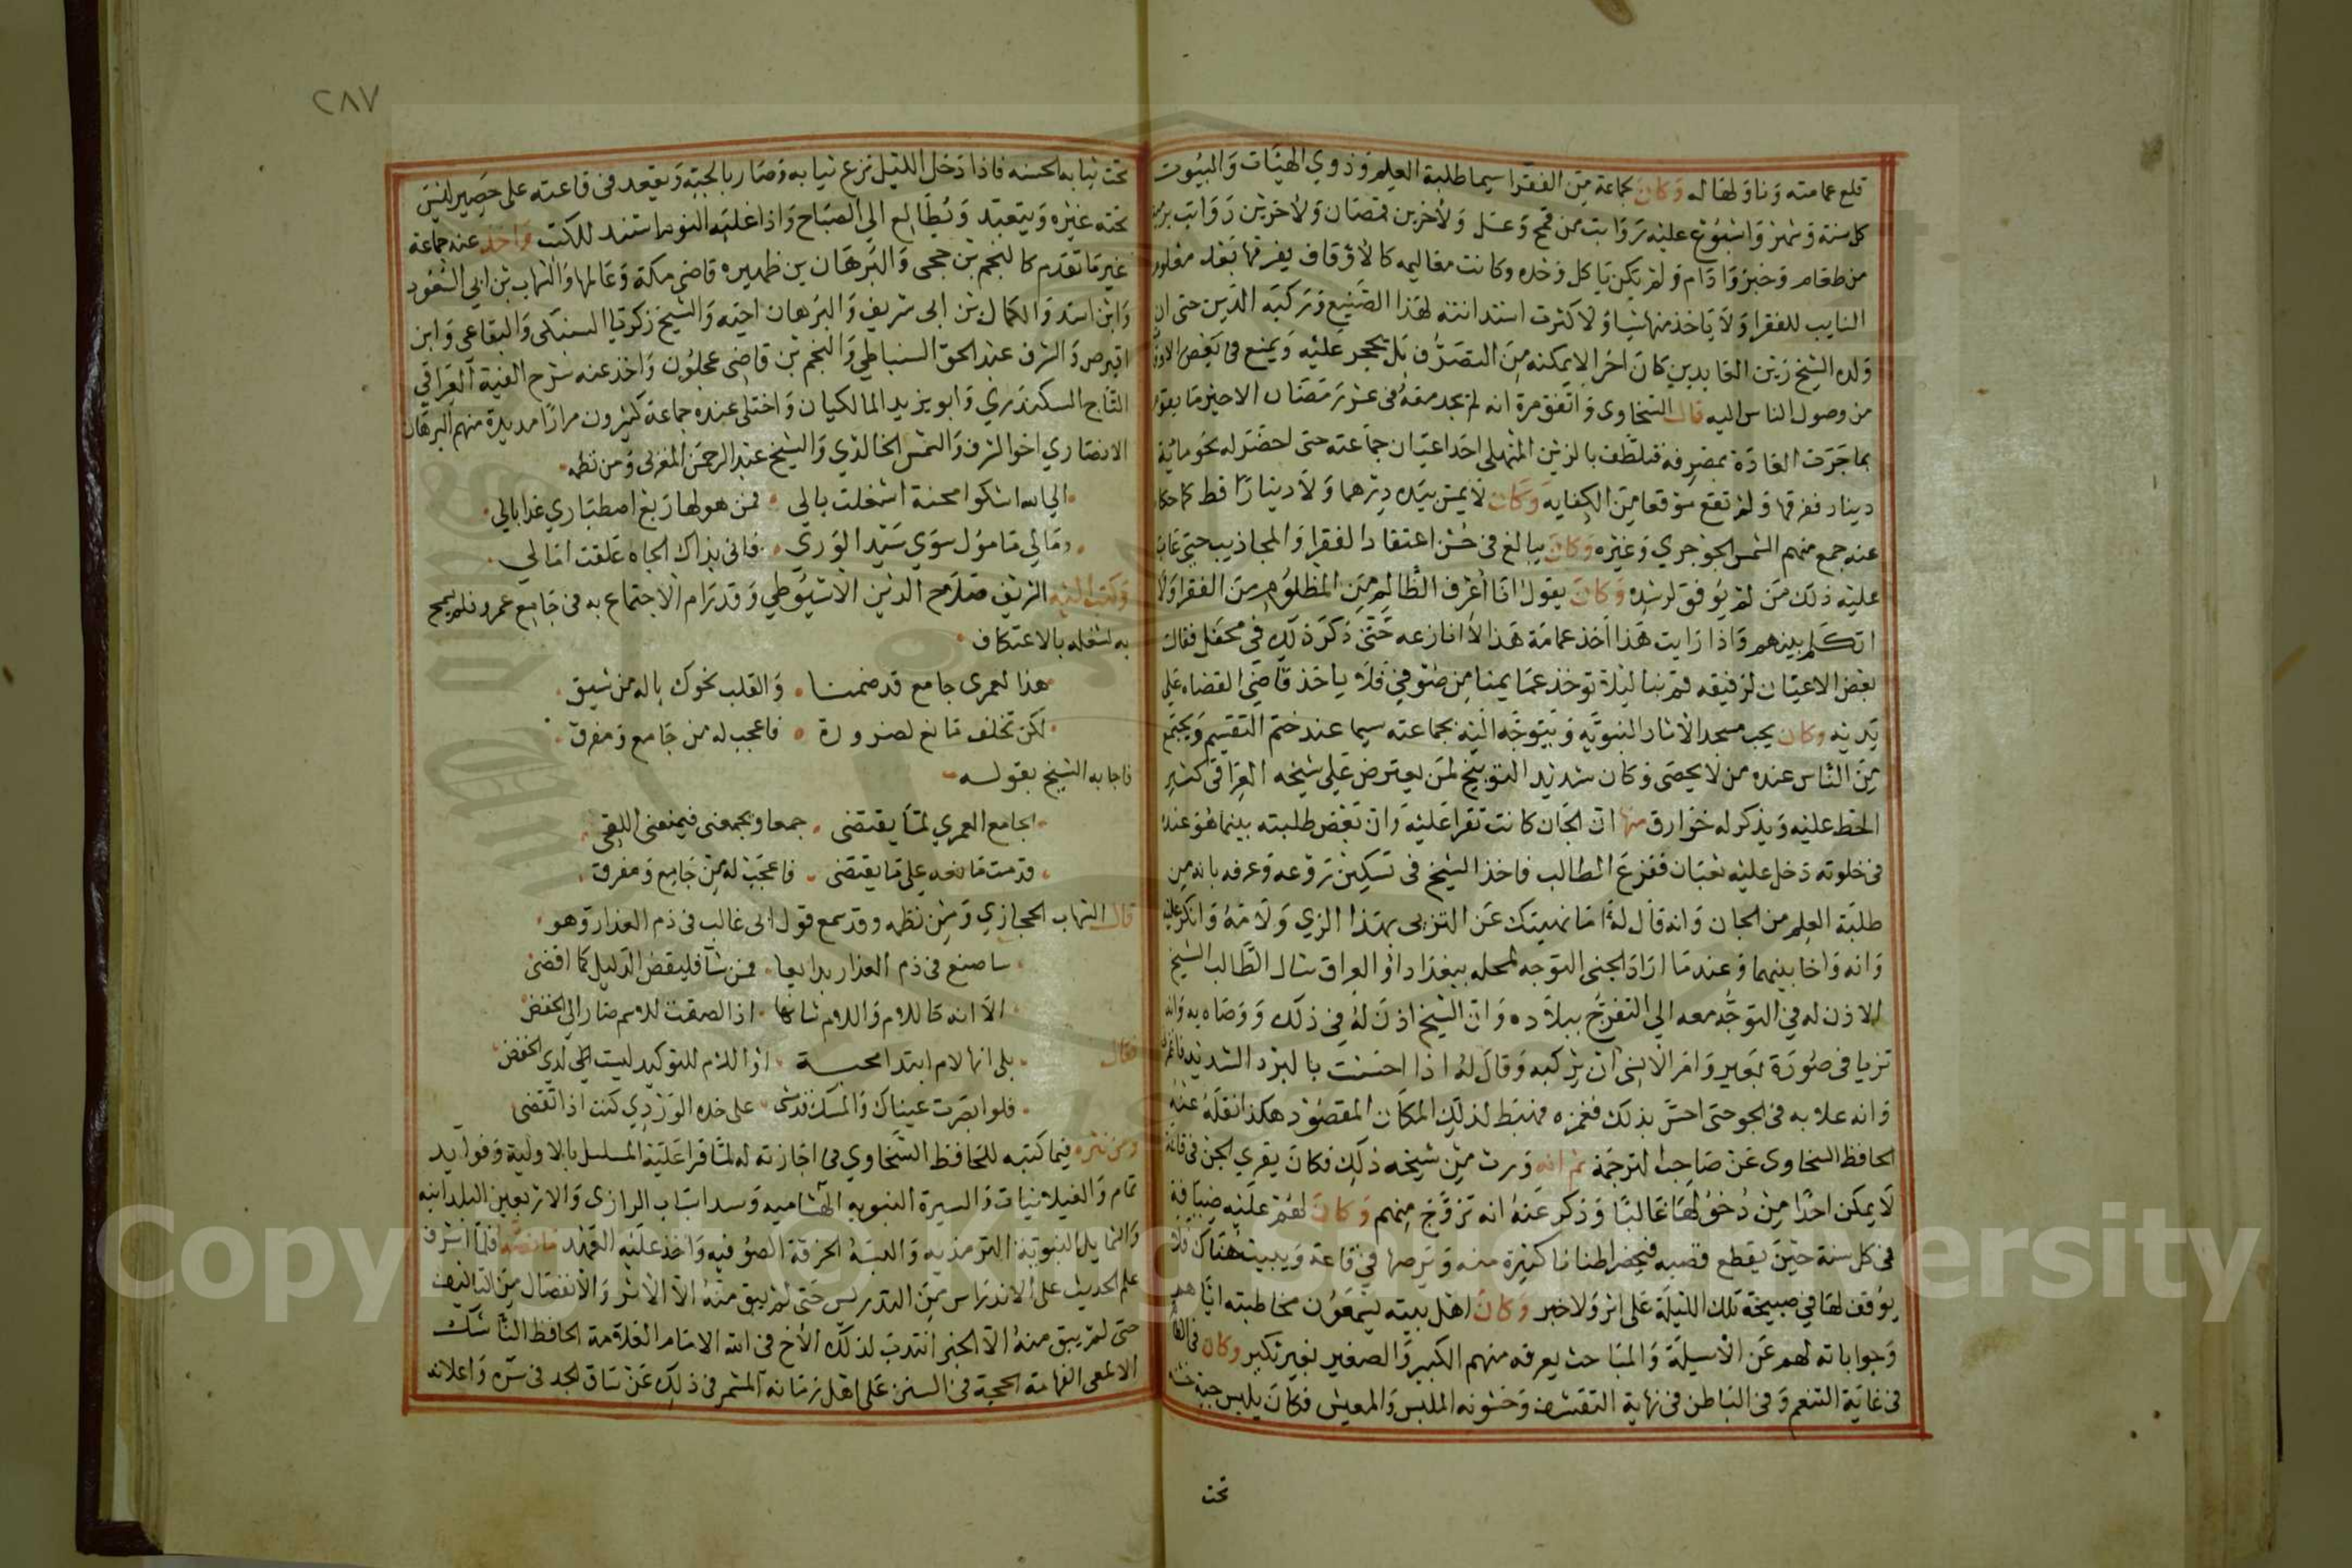 قلع عمامته وناولها له وكان لجماعة من الفقرا سيما طلبة العلم وذوي الهيئات والبيوت
كل سنة وشهر واسبوع عليه رواتب من قمح وعسل ولاخرين قمصان ولاخرين رواتب
من طعام وخبز وادام ولم يكن ياكل وحده وكانت معاليمه كالاوقاف يفرقها بعده
النايب للفقرا ولا ياخذ منها شيا ولا كثرت استدانته لهذا الصنيع وتركبه الدين حتى ان
ولده الشيخ زين العابدين كان اخرا لا يمكنه من التصرف بل يحجر عليه ويمنع في بعض
من وصول الناس اليه قال السخاوي واتفق مرة انه لم يجد معه في عشر رمضان الاخير ما يقوم
بما جرت العادة بمصرفه فتلطف بالزين المنهلي احد اعيان جماعته حتى احضر له نحو مائة
دينار ففرقها ولم تقع موقعا من الكفاية وكان لا يمس بيده درهما ولا دينارا قط كما حكا
عنه جمع منهم الشمس الجوجري وغيره وكان يبالغ في حسن اعتقاد الفقرا والمجاذيب حتى عاب
عليه ذلك من لم يوفق لرشده وكان يقول انا اعرف الظالم من المظلوم من الفقرا ولا
اتكلم بينهم واذا رايت هذا اخذ عمامة هذا لا انازعه حتى ذكر ذلك في محفل فقال
بعض الاعيان لرفيقه قم بنا ليلا توخذ عمايمنا من صوفي فلا ياخذ قاضي القضاه على
يديه وكان يحب مسجد الاثار النبوية ويتوجه اليه بجماعته سيما عند ختم التقسيم ويجتمع
من الناس عنده من لا يحصى وكان شديد التوبيخ لمن يعترض على شيخه العراقي كثير
الحط عليه ويذكر له خوارق منها ان الجان كانت تقرا عليه وان بعض طلبته بينما هو عنده
في خلوته دخل عليه ثعبان ففزع الطالب فاخذ الشيخ في تسكين روعه وعرفه بانه من
طلبة العلم من الجان وانه قال له اما نهيتك عن التزيي بهذا الزي ولامه وانكر عليه
وانه واخا بينهما وعند ما اراد الجني التوجه لمحله ببغداد او العراق سال الطالب الشيخ
الاذن له في التوجه معه الي التفرج ببلاده وان الشيخ اذن له في ذلك ووصاه به وانه
تزيا في صورة بعير وامر الانسي ان يركبه وقال له اذا احسست بالبرد الشديد فاغمزني
وانه علا به في الجو حتى احس بذلك فغمزه فهبط لذلك المكان المقصود هكذا نقله عنه
الحافظ السخاوي عن صاحب الترجمة ثم انه ورث من شيخه ذلك فكان يقري الجن في قاعة
لا يمكن احدا من دخولها غالبا وذكر عنه انه تزوج منهم وكان لهم عليه ضيافة
في كل سنة حين يقطع قصبه فيحضر اطنانا كثيرة منه ويرصها في قاعة ويبيت هناك فلا
يوقف لها في صبيحة تلك الليلة على اثر ولا خبر وكان اهل بيته يسمعون مخاطبته اياهم
وجواباته لهم عن الاسيلة والمباحث يعرفه منهم الكبير والصغير بغير نكير وكان في الظاهر
في غاية التنعم وفي الباطن في نهاية التقشف وخشونه الملبس والمعيش فكان يلبس جبة
تحت
٢٨٧
تحت ثيابه الحسنه فاذا دخل الليل نزع ثيابه وصار بالجبة ويقعد في قاعته على حصير ليس
تحته غيره ويتعبد ويطالع الي الصباح واذا غلبه النوم استند للكتب واخذ عنه جماعة
غير ما تقدم كالنجم بن حجي والبرهان بن ظهيره قاضي مكة وعالمها والشهاب بن ابي السعود
وابن اسد والكمال بن ابي شريف والبرهان اخيه والشيخ زكريا السنيكي والبقاعي وابن
اقبرص والشرف عبد الحق السنباطي والنجم بن قاضي عجلون واخذ عنه شرح الفية العراقي
التاج السكندري وابو يزيد المالكيان واختلى عنده جماعة كثيرون مرارا مديدة منهم البرهان
الانصاري اخو الشرف والشمس الخالدي والشيخ عبد الرحمن المغربي ومن نظمه
الي الله اشكوا محنة اشغلت بالي فمن هولها ربع اصطباري غدا بالي
ومالي مامول سوي سيد الوري فاني بذاك الجاه علقت امالي
وكتب اليه الشريف صلاح الدين الاسيوطي وقد رام الاجتماع به في جامع عمرو فلم يسمح
به لشغله بالاعتكاف
هذا لعمري جامع قد ضمنا والقلب نحوك باله من شيق
لكن تخلف مانع لضرورة فاعجب له من جامع ومفرق
فاجابه الشيخ بقوله
الجامع العمري لما يقتضي جمعا ويجمعني فيمنعني اللقي
قدمت مانعه على ما يقتضي فاعجب له من جامع ومفرق
قال الشهاب الحجازي ومن نظمه وقد سمع قول ابي غالب في ذم العذار وهو
ساصنع في ذم العذار بدايعا فمن شا فليقض الدليل كما اقضي
الا انه كاللام واللام شانها اذا لصقت للاسم صار الي الخفض
فقال بلي انها لام ابتدا محبة او اللام للتوكيد ليست لدي الخفض
فلو ابصرت عيناك والمسك قدسي على خده الوردي كنت اذا تقضي
ومن نثره فيما كتبه للحافظ السخاوي في اجازته له لما قرا عليه المسلسل بالاولية وفوايد
تمام والغيلانيات والسيرة النبويه الهشاميه وسداسيات الرازي والاربعين البلدانيه
والشمايل النبوية الترمذيه والبسه الخرقة الصوفيه واخذ عليه العهد ما نصه فلما اشرف
علم الحديث على الاندراس من التدريس حتى لم يبق منه الا الاثر والانفصال من التاليف
حتى لم يبق منه الا الخبر انتدب لذلك الاخ في الله الامام العلامة الحافظ الناسك
الالمعي الفهامة الحجة في السنن على اهل زمانه المشمر في ذلك عن ساق الجد في سره واعلانه